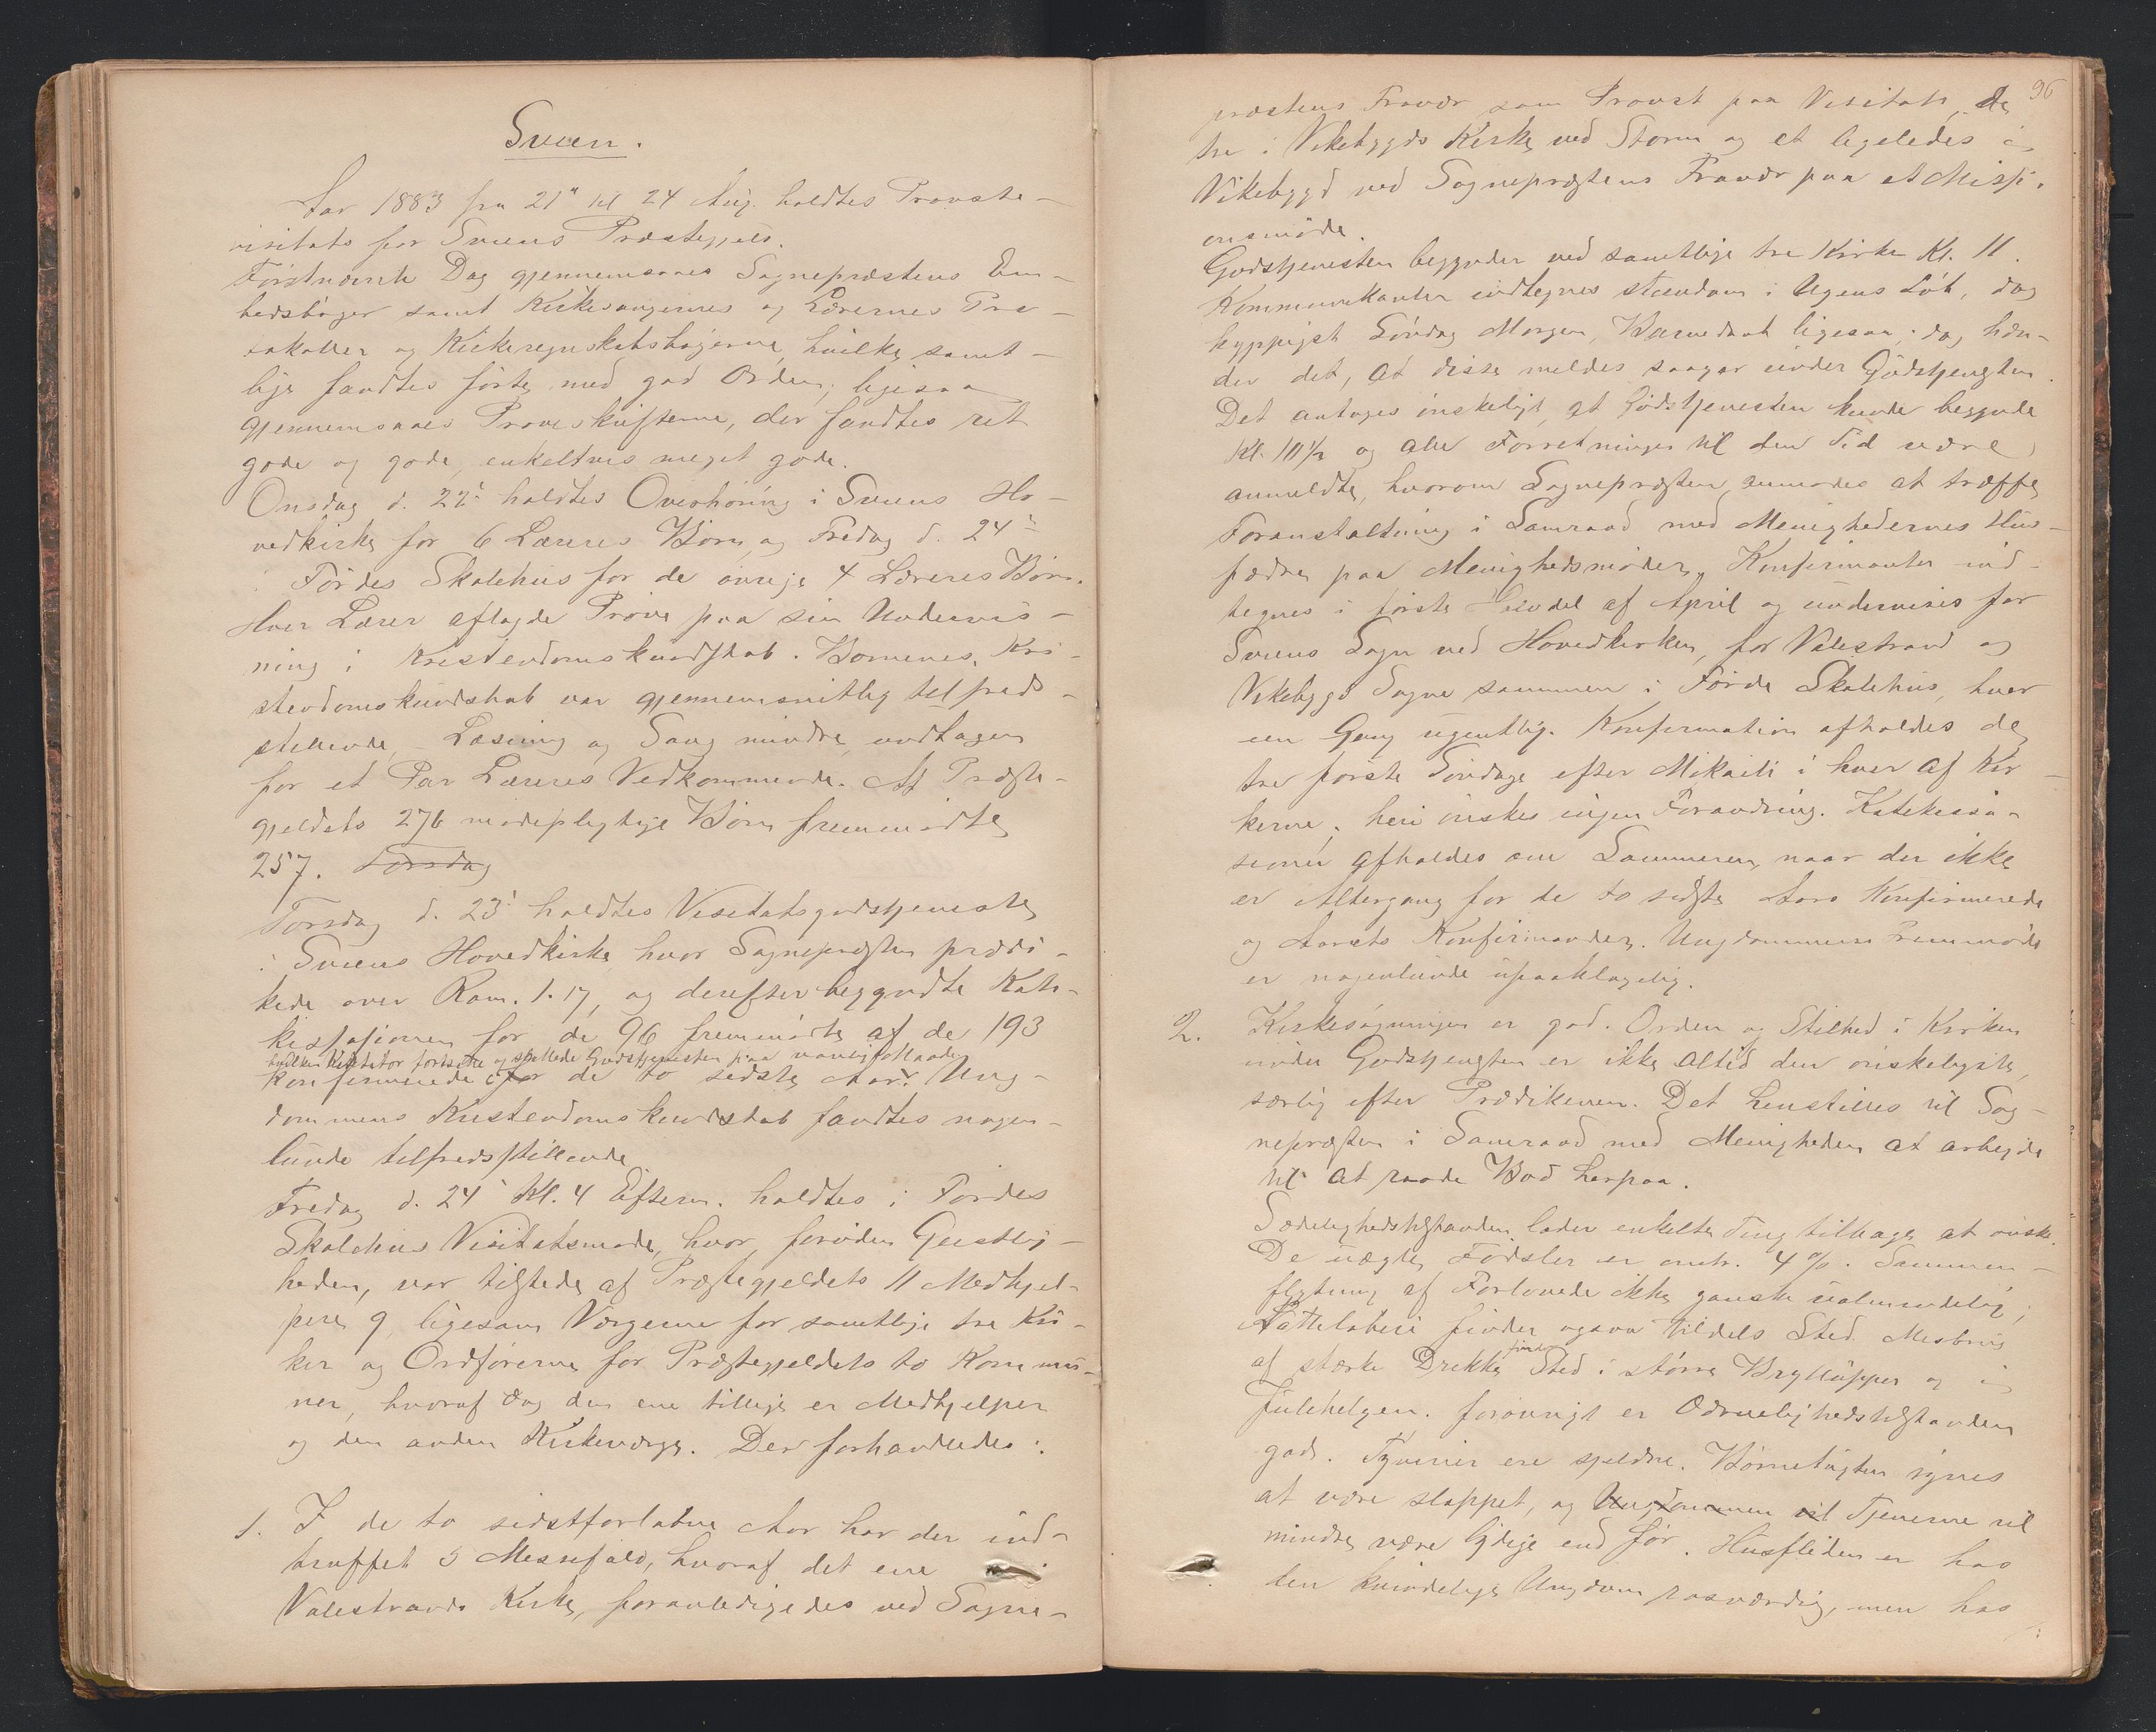 Sveen.
Aar 1883 fra 21de til 24 Aug. holdtes Provste-
visitats for Sveens Præstegjeld.
Førstnævnte Dag gjennemsaaes Sognepræstens Em-
bedsbøger samt Kirkesangernes og Lærernes Pro-
tokoller og Kirkeregnskabsbøgerne, hvilke samt-
lige fandtes førte med god Orden; ligesaa
gjennemsaaes Prøveskrifterne, der fandtes ret
gode og gode, enkeltvis meget gode.
Onsdag d. 22de holdtes Overhøring i Sveens Ho-
vedkirke for 6 Læreres Børn og Fredag d. 24de
i Førdes Skolehus for de øvrige 4 Læreres Børn.
Hver Lærer aflagde Prøve paa sin Undervis-
ning i Kristendomskundskab. Børnenes Kri-
stendomskundskab var gjennemsnitlig tilfreds-
stillende, – Læsning og Sang mindre, undtagen
for et Par Læreres Vedkommende. Af Præste-
gjeldets 276 mødepligtige Børn fremmødte
257. Torsdag
Torsdag d. 23de holdtes Visitatsgudstjeneste
i Sveens Hovedkirke hvor Sognepræsten prædi-
kede over Rom. 1.17, og derefter begyndte Kate-
kisationen for de 96 fremmødte af de 193
hvilken Visitator fortsatte og sluttede Gudstjenesten paa vanlig Maade
konfirmerede for de to sidste Aar. Ung-
dommens Kristendomskundskab fandtes nogen-
lunde tilfredsstillende
Fredag d. 24de Kl. 4 Efterm. holdtes i Førdes
Skolehus Visitatsmøde, hvor foruden Geistlig-
heden, var tilstede af Præstegjeldets 11 Medhjel-
pere 9, ligesom Værgerne for samtlige tre Kir-
ker og Ordførerne for Præstegjeldets to Kommu-
ner, hvoraf dog den ene tillige er Medhjelper
og den anden Kirkeværge. Der forhandledes:
1. I de to sidstforløbne Aar har der ind-
truffet 5 Messefald, hvoraf det ene i
Valestrands Kirke, foranledigedes ved Sogne-
96
præstens Fravær som Provst paa Visitats, de
tre i Vikebygds Kirke ved Storm og et ligeledes i
Vikebygd ved Sognepræstens Fravær paa et Missi-
onsmøde.
Gudstjenesten begynder ved samtlige tre Kirker Kl. 11.
Kommunikanter indtegnes stundom i Ugens Løb, dog
hyppigst Søndag Morgen, Barnedaab ligesaa; dog hæn-
der det, at disse meldes saagar under Gudstjenesten.
Det antages ønskeligt, at Gudstjenesten kunde begynde
Kl. 10½ og alle Forretninger til den Tid være
anmeldte, hvorom Sognepræsten anmodes at træffe
Foranstaltning i Samraad med Menighedernes Hus-
fædre paa Menighedsmøder. Konfirmanter ind-
tegnes i første Halvdel af April og undervises for
Sveens Sogn ved Hovedkirken, for Valestrand og
Vikebygd Sogne sammen i Førde Skolehus, hver
een Gang ugentlig. Konfirmation afholdes de
tre første Søndage efter Mikaeli i hver af Kir-
kerne; heri ønskes ingen Forandring. Katekisa-
tioner afholdes om Sommeren, naar der ikke
er Altergang for de to sidste Aars Konfirmerede
og Aarets Konfirmander. Ungdommens Fremmøde
er nogenlunde upaaklagelig.
2. Kirkesøgningen er god. Orden og Stilhed i Kirken
under Gudstjenesten er ikke altid den ønskeligste,
særlig efter Prædikenen. Det henstilles til Sog-
nepræsten i Samraad med Menigheden at arbejde
til at raade Bod herpaa.
Sædelighedstilstanden lader enkelte Ting tilbage at ønske.
De uægte Fødsler er omtr. 4 %. Sammen-
flytning af Forlovede ikke ganske ualmindelig;
Natteløberi finder ogsaa tildels Sted. Misbrug
af stærke Drikke finder Sted i større Bryllupper og i
Julehelgen. forøvrigt er Ædruelighedstilstanden
god. Tyverier ere sjeldne. Børnetugten synes
at være slappet, og Ungdommen vil Tjenerne vil
mindre være lydige end før. Husfliden er hos
den kvindelige Ungdom rosværdig, men hos